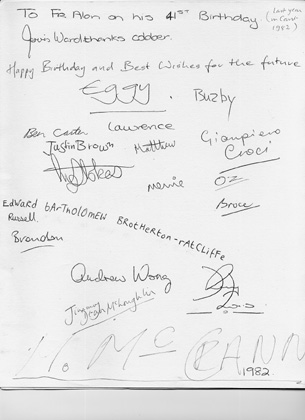 To Fr Alan on his 41ST Birthday (last year in Cant 1982)
Jarvis Ward thanks cobber.
Happy Birthday and Best Wishes for the future
Eggy. Buzby
Ben Carter Lawrence
Justin Brown Matthew Gianpiero Croci
Oz
Bruce
Edward bArTholOmEW BRotHeRton-rATCLiFFe
Russell.
Brandon
Andrew Wong
Jimmy
Sean McLoughlin
H. McCANN
1982.